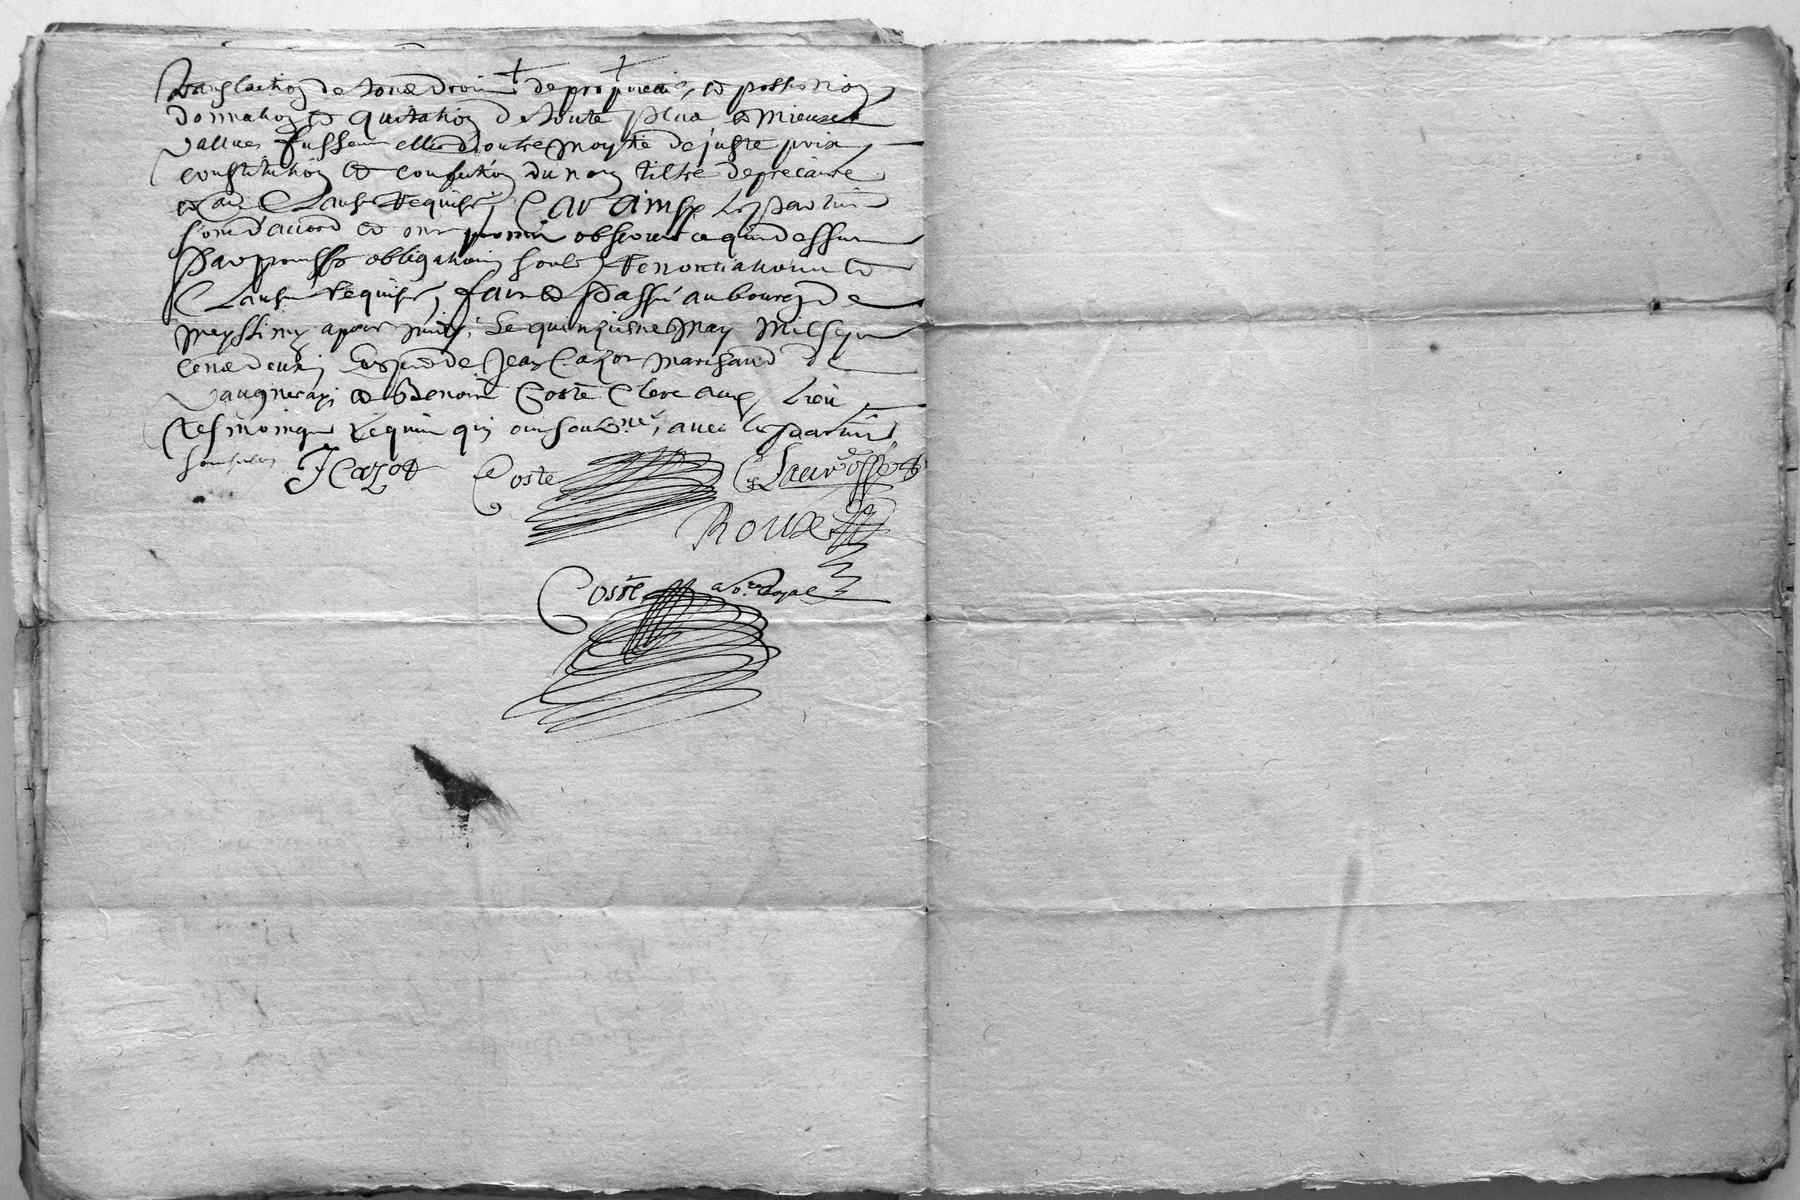 Translation de tous droicts de proprieté, et possession
donnation et quitation de toute plus et mieux
vallue fussent elle d'outre moytié de juste prix
constitution et confection du nom tiltre de precaire
et au clauses requises, Car ainsy les parties
sont d'accord et ont promis observer ce que dessus
par obligations soubz renonciations et
Clauses requises, faict et passé au bourg de
Meyssimy apres midy, le quinziesme may mil six
cens deux, En pnce de Jean Cazot marchand de
Vaugneray et Benoist Coste Clerc aud lieu
tesmoings requis qui ont soubzne, avec les parties
JCazot Coste
Roux
Coste no.re Royal